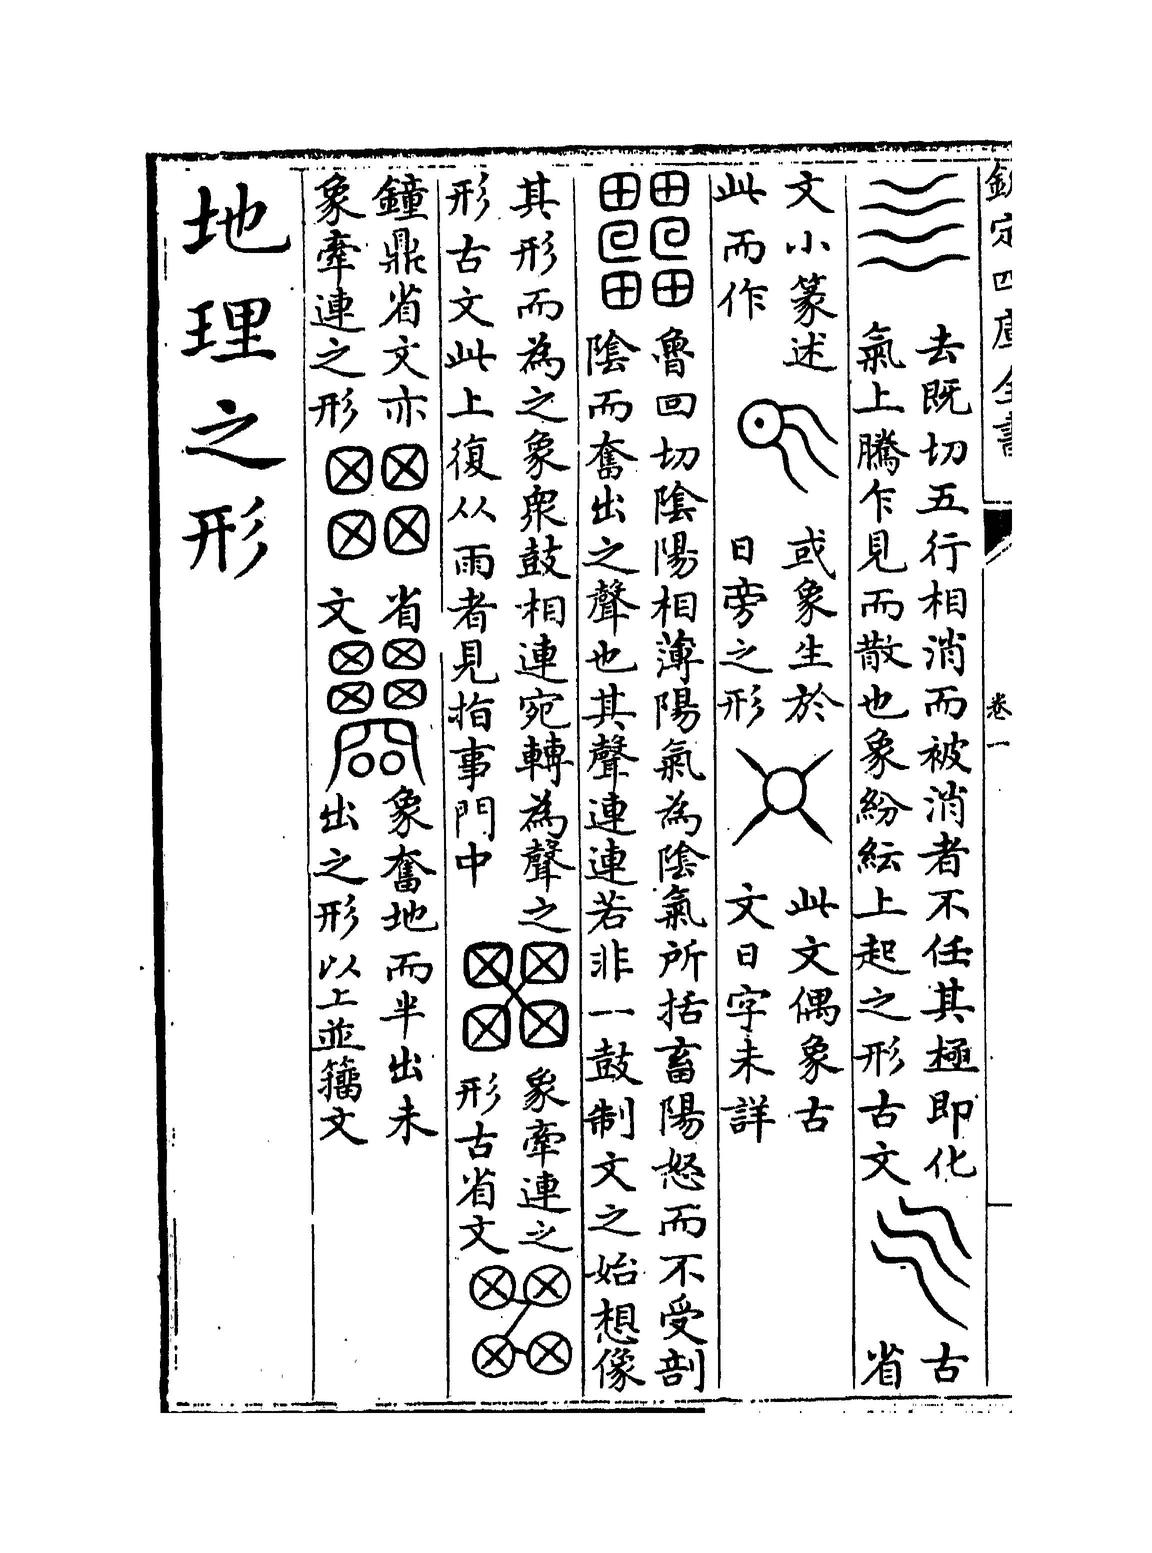 欽定四庫全書
卷一
去既切五行相消而被消者不任其極即化
氣上騰乍見而散也象紛紜上起之形古文
古
省
文小篆述
此而作
或象生於
日旁之形
此文偶象古
文日字未詳
魯回切陰陽相薄陽氣為陰氣所括畜陽怒而不受剖
陰而奮出之聲也其聲連連若非一鼓制文之始想像
其形而為之象衆鼓相連宛轉為聲之
形古文此上復从雨者見指事門中
象牽連之
形古省文
鐘鼎省文亦
象牽連之形
省
文
象奮地而半出未
出之形以上並籀文
地理之形